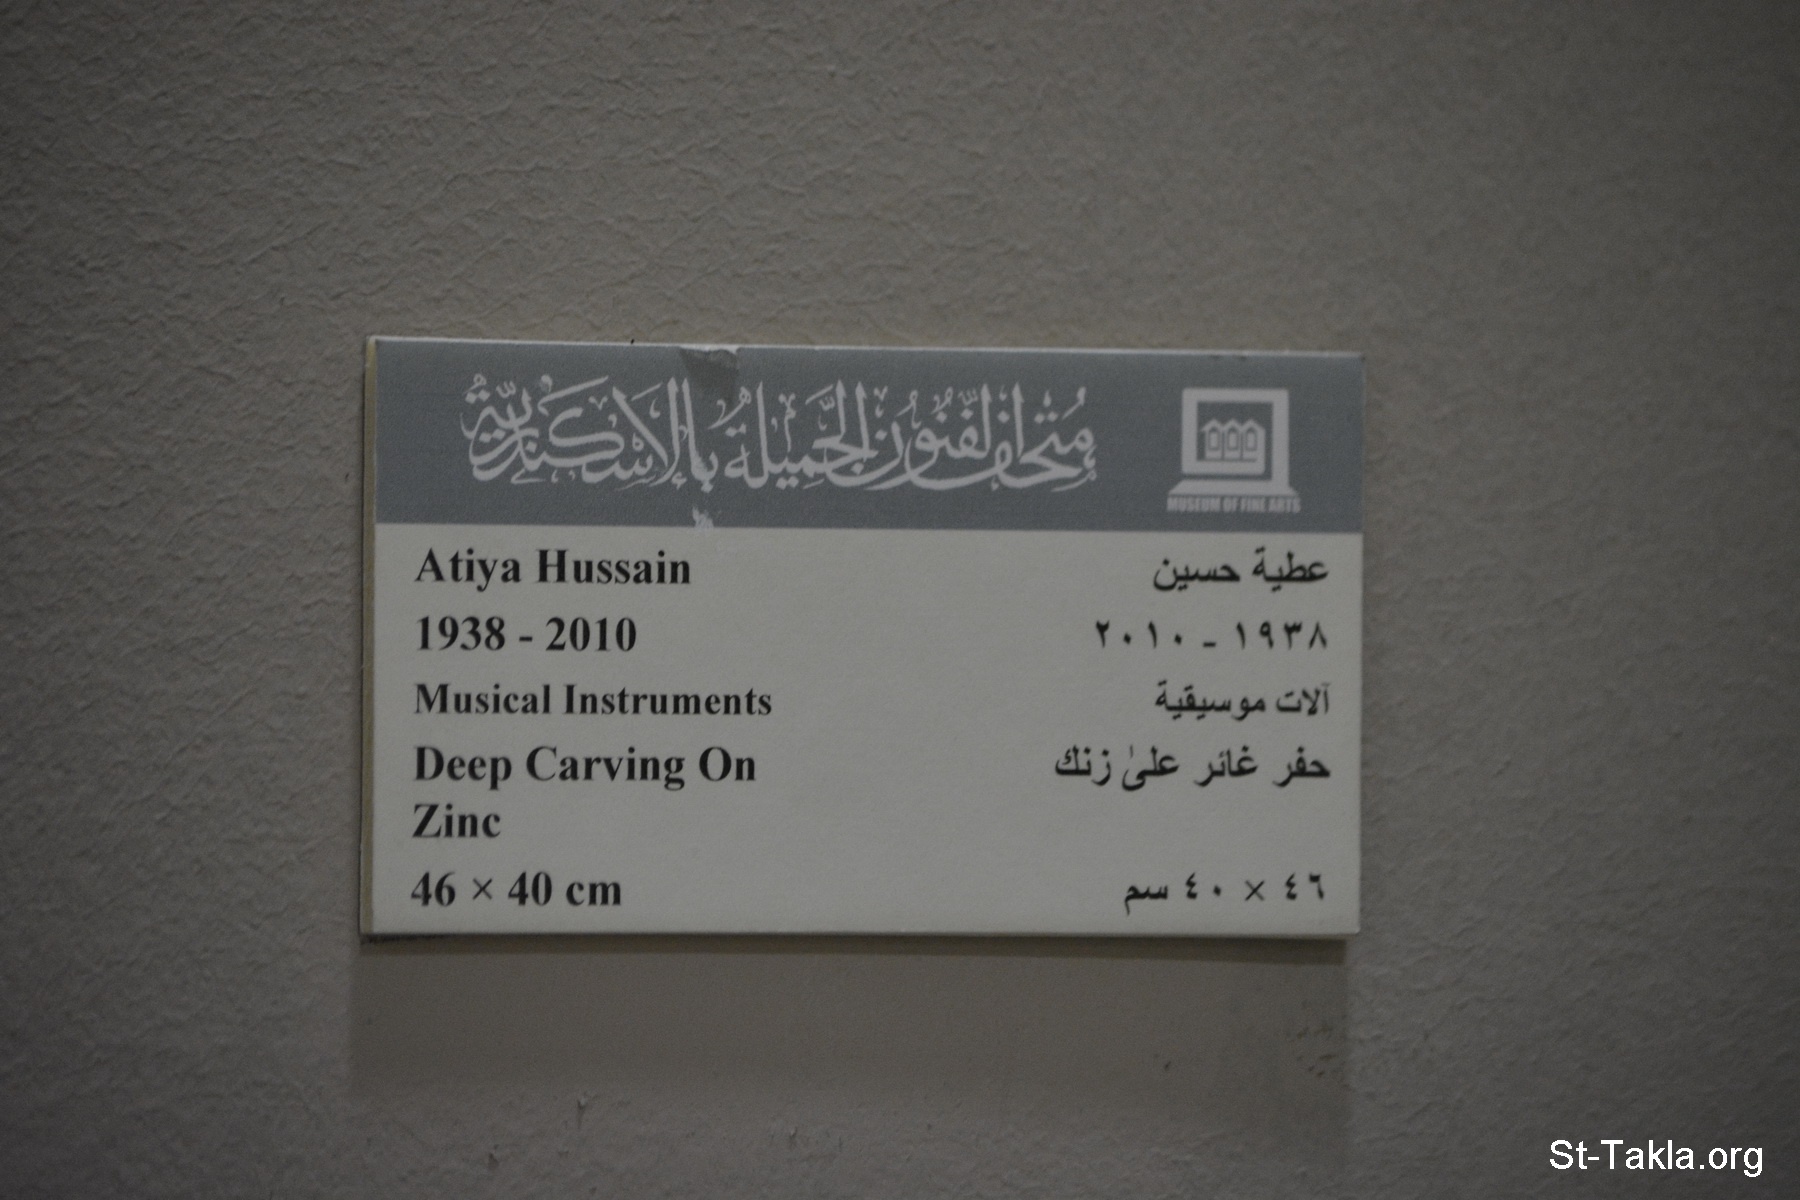 متحف الفنون الجميلة بالإسكندرية
MUSEUM OF FINE ARTS
Atiya Hussain
1938 - 2010
Musical Instruments
Deep Carving On
Zinc
46 × 40 cm
عطية حسين
١٩٣٨ - ٢٠١٠
آلات موسيقية
حفر غائر علىٰ زنك
٤٦ × ٤٠ سم
St-Takla.org